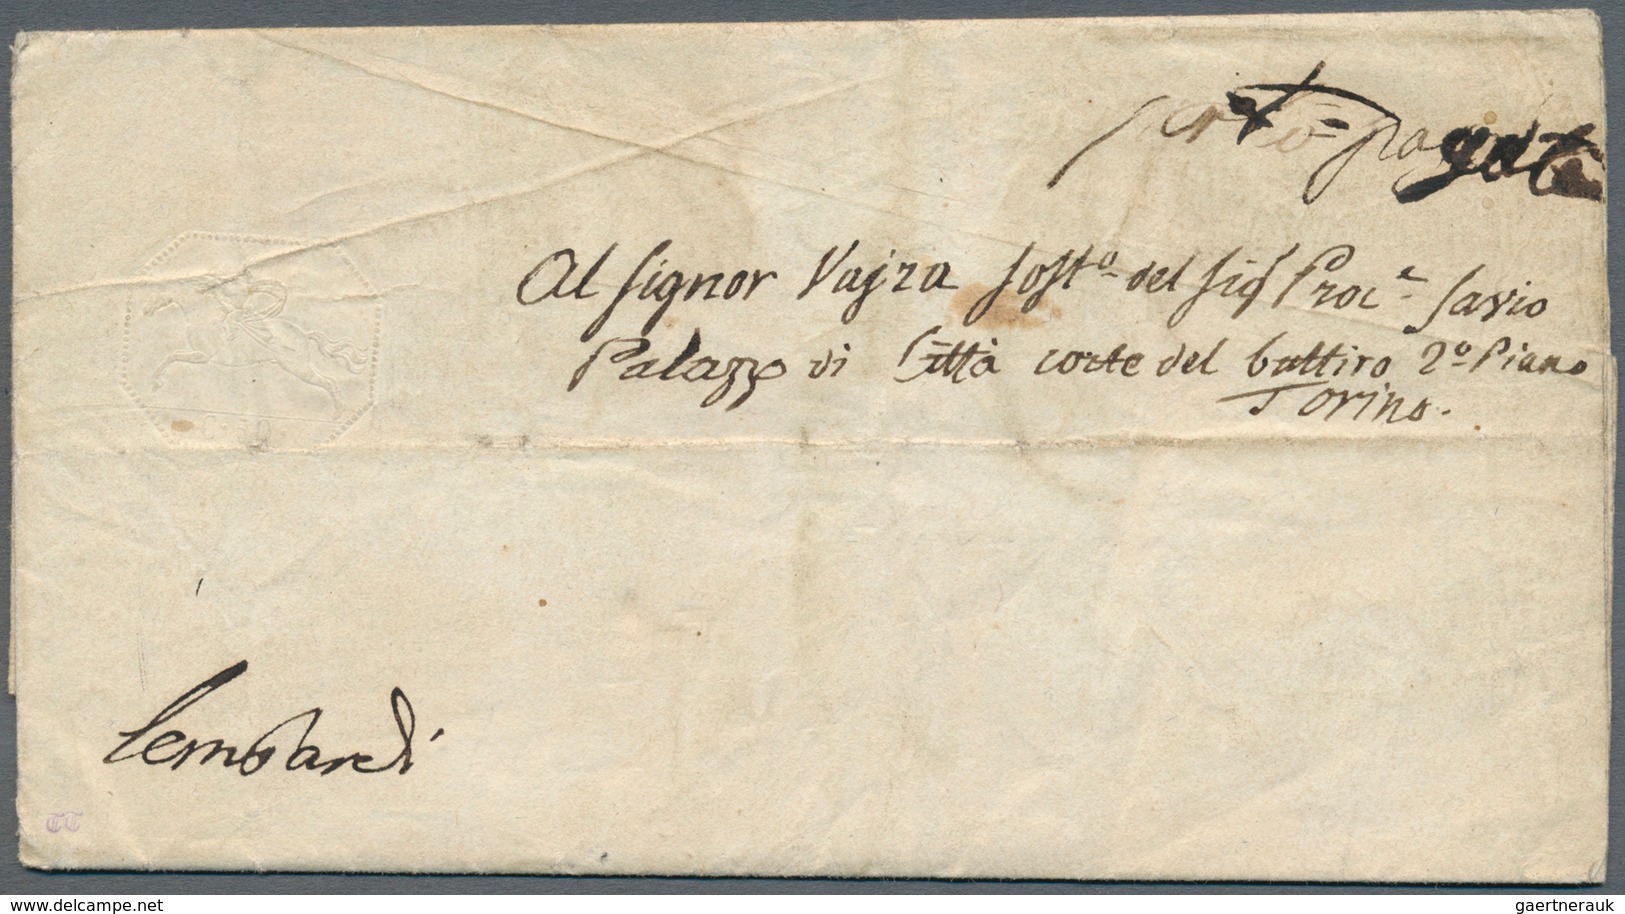 porto pagato
Al Signor Vajra Sost.º del Sig.r Proc.e Savio
Palazzo di Città corte del buttiro 2º Piano
Torino.
Lombardi
TT
50
www.delcampe.net
gaertnerauk